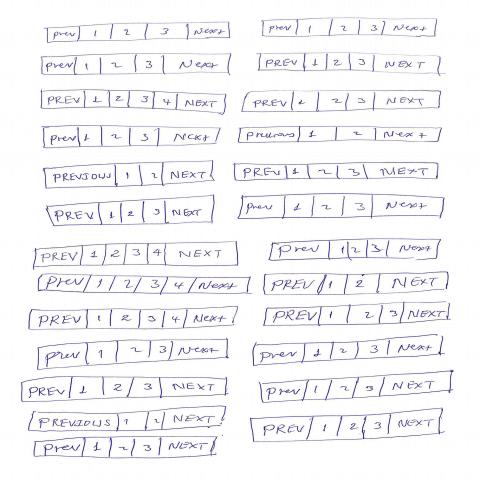 prev 1 2 3 Next
prev 1 2 3 Next
prev 1 2 3 Next
PREV 1 2 3 NEXT
PREV 1 2 3 4 NEXT
PREV 1 2 3 NEXT
prev 1 2 3 Next
Previous 1 2 Next
PREVIOUS 1 2 NEXT
PREV 1 2 3 NEXT
PREV 1 2 3 NEXT
Prev 1 2 3 Next
PREV 1 2 3 4 NEXT
Prev 1 2 3 Next
Prev 1 2 3 4 Next
PREV 1 2 NEXT
PREV 1 2 3 4 Next
PREV 1 2 3 NEXT
prev 1 2 3 Next
prev 1 2 3 Next
PREV 1 2 3 NEXT
prev 1 2 3 NEXT
PREVIOUS 1 2 NEXT
PREV 1 2 3 NEXT
prev 1 2 3 NEXT